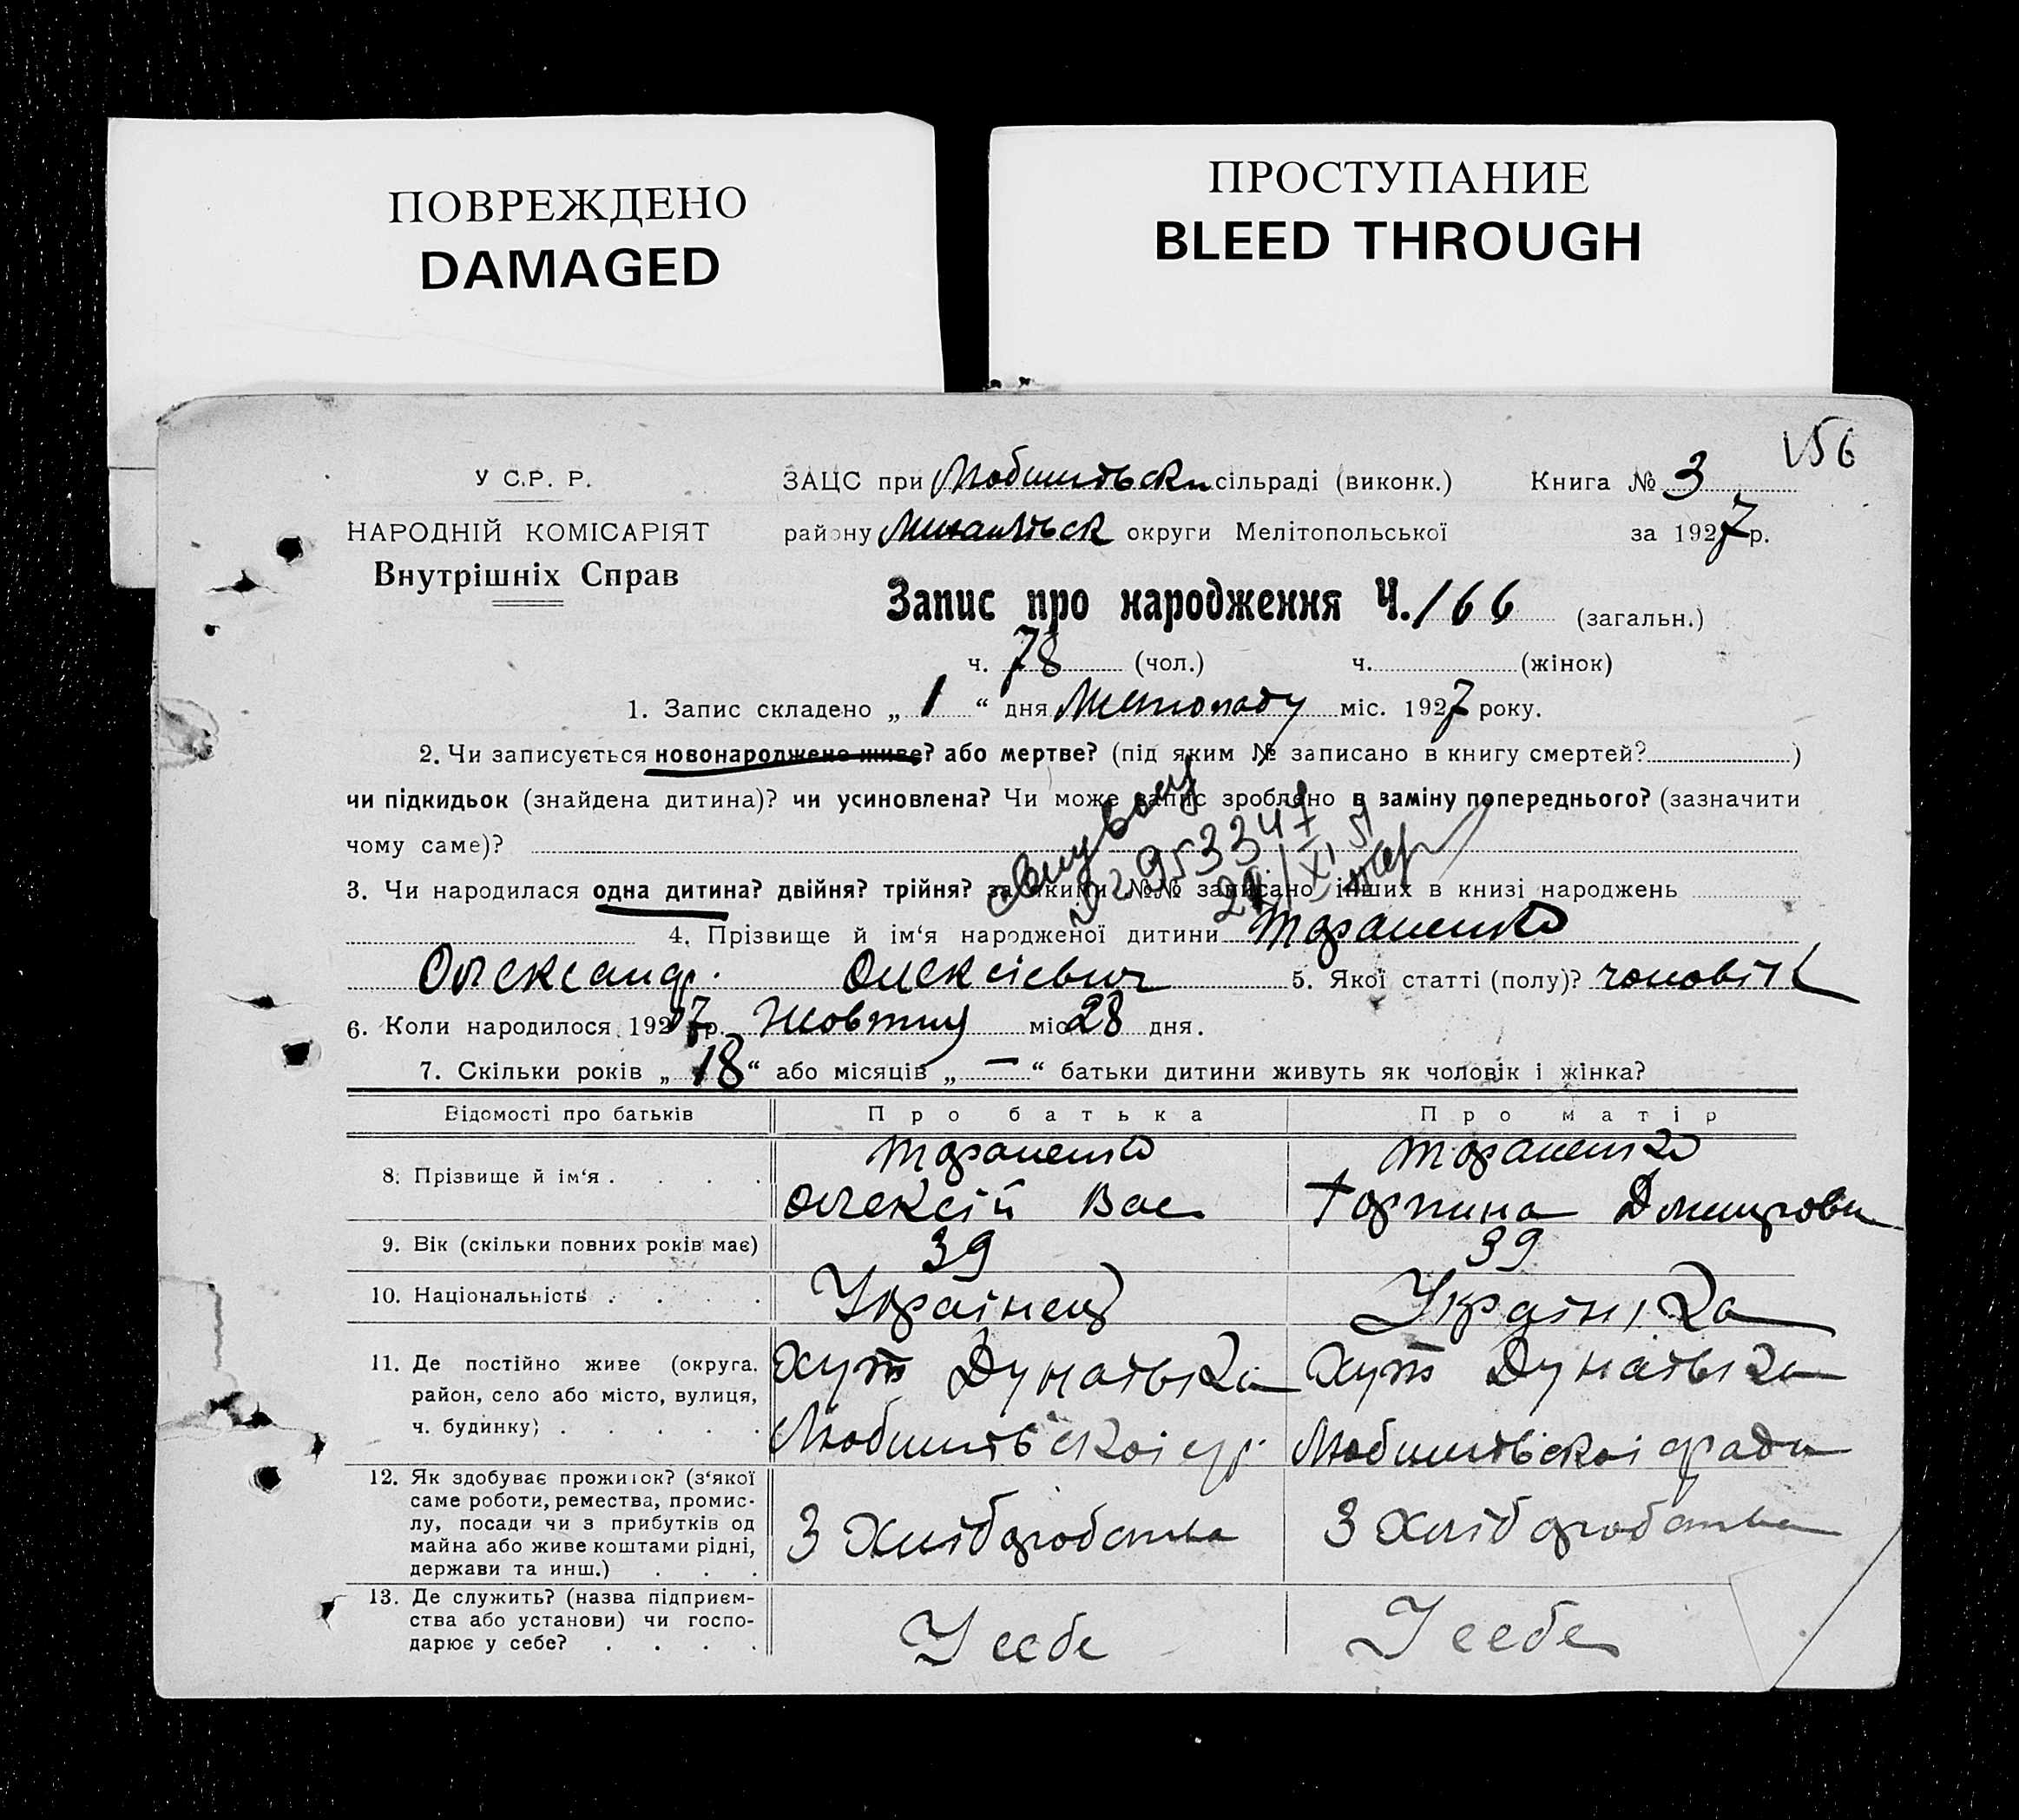 ПОВРЕЖДЕНО
DAMAGED
ПРОСТУПАНИЕ
BLEED THROUGH
156
У С.Р. Р.
НАРОДНІЙ КОМІСАРІЯТ
Внутрішніх Справ
ЗАЦС при сільраді (виконк.) Книга № 3
району округи Мелітопольської за 1927 р.
Запис про народження Ч. 166 (загальн.)
ч. 78 (чол.) ч. (жінок)
1. Запис складено „ 1 “ дня Листопаду міс. 1927 року.
2. Чи записується новонароджене живе? або мертве? (під яким № записано в книгу смертей? )
чи підкидьок (знайдена дитина)? чи усиновлена? Чи може запис зроблено в заміну попереднього? (зазначити
чому саме)?
3. Чи народилася одна дитина? двійня? трійня? за якими №№ записано інших в книзі народжень
4. Прізвище й ім‘я народженої дитини Тараненко
Олександр Олексієвич 5. Якої статті (полу)? чоловік
6. Коли народилося 1927 р. Жовтня міс 28 дня.
7. Скільки років „ 18 “ або місяців „ — “ батьки дитини живуть як чоловік і жінка?
Відомості про батьків Про батька Про матір
8. Прізвище й ім‘я . . . . Тараненко Тараненко
Олексій Вас Дмитровн
9. Вік (скільки повних років має) 39 39
10. Національність . . . . Українец Українка
11. Де постійно живе (округа, район, село або місто, вулиця, ч. будинку) . . . . . Хут Дунаївка Хут Дунаївка
12. Як здобуває прожиток? (з‘якої саме роботи, ремества, промислу, посади чи з прибутків од майна або живе коштами рідні, держави та инш.) . . . З Хліборобства З Хліборобства
13. Де служить? (назва підприємства або установи) чи господарює у себе? . . . . У себе У себе